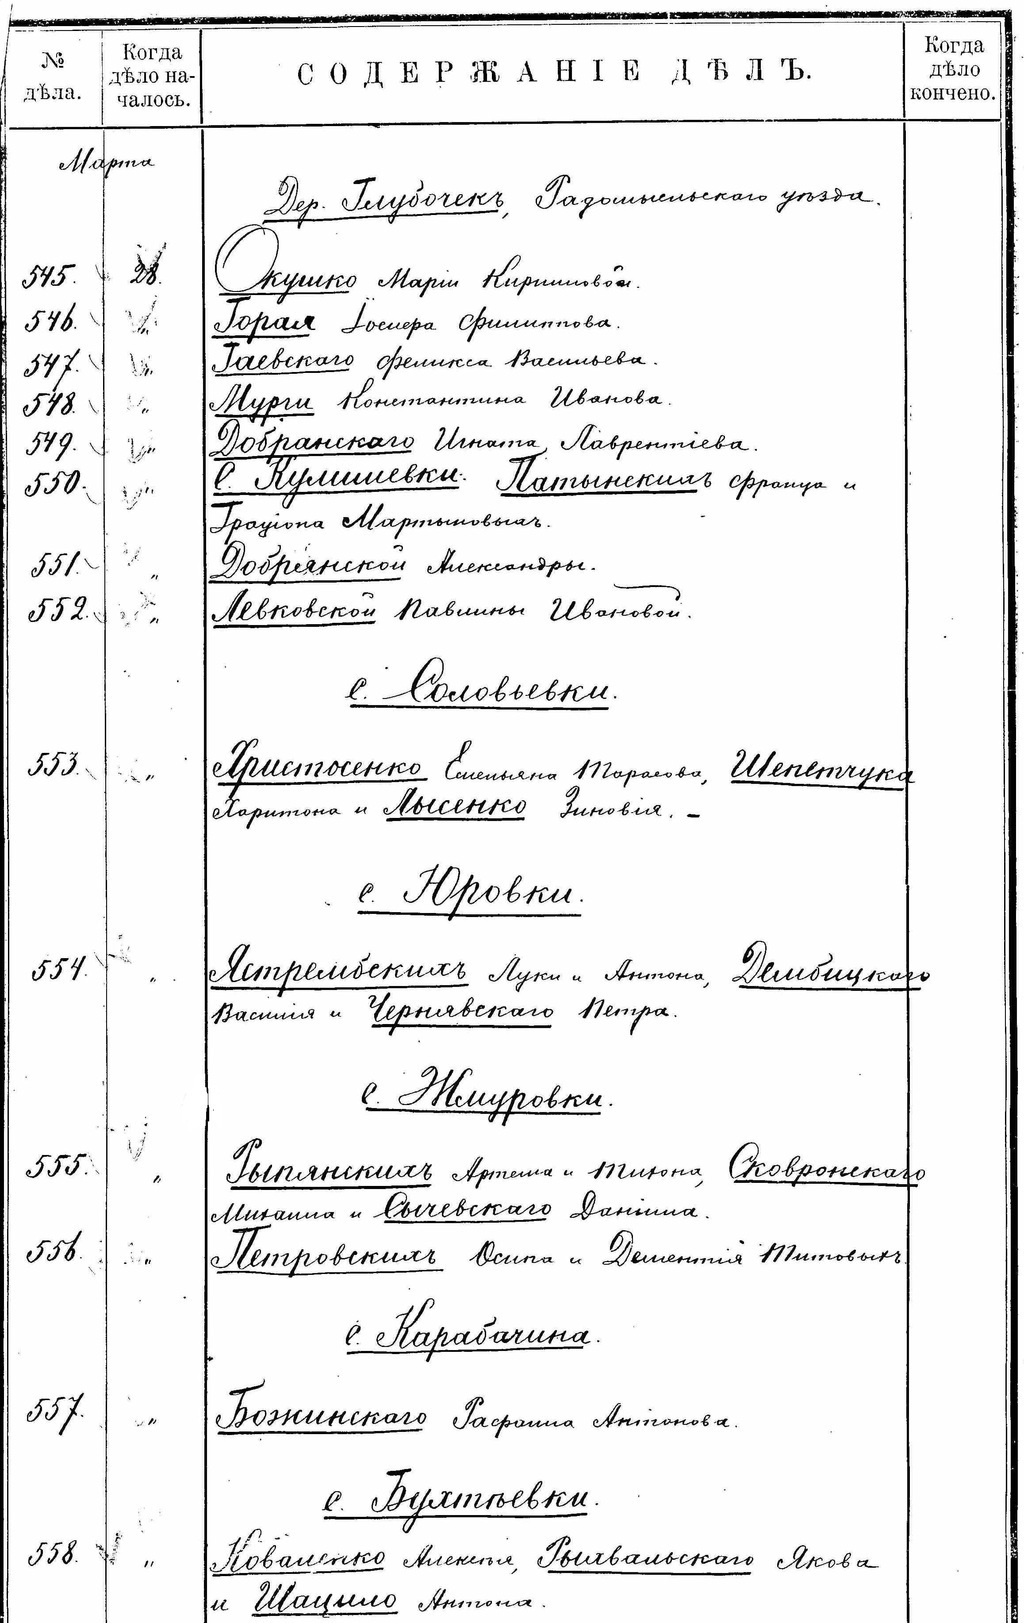 № дѣла.
Когда дѣло на-чалось.
СОДЕРЖАНІЕ ДѢЛЪ.
Когда дѣло кончено.
Марта
Дер. Глубочекъ, Радомысльскаго уѣзда.
545. 28. Окушко Маріи Кирилловой.
546. " Горая Іосифа Филиппова.
547. " Гаевскаго Феликса Васильева.
548. " Мурги Константина Иванова.
549. " Добранскаго Игната Лаврентіева.
550. " С. Кулишевки. Патынскихъ Франца и
Граціона Мартыновыхъ.
551. " Добрянской Александры.
552. " Левковской Павлины Ивановой.
с. Соловьевки.
553. " Христосенко Емельяна Тарасова, Шепетчука
Харитона и Лысенко Зиновія. –
с. Юровки.
554. " Ястрембскихъ Луки и Антона, Дембицкаго
Василія и Чернявскаго Петра.
с. Жмуровки.
555. " Рыплянскихъ Артема и Тихона, Сковронскаго
Михаила и Сычевскаго Даніила.
556. " Петровскихъ Осипа и Дементія Титовыхъ.
с. Карабачина.
557. " Божинскаго Рафаила Антонова.
с. Бухтѣевки.
558. " Коваленко Алексѣя, Рыхвальскаго Якова
и Шацило Антона.